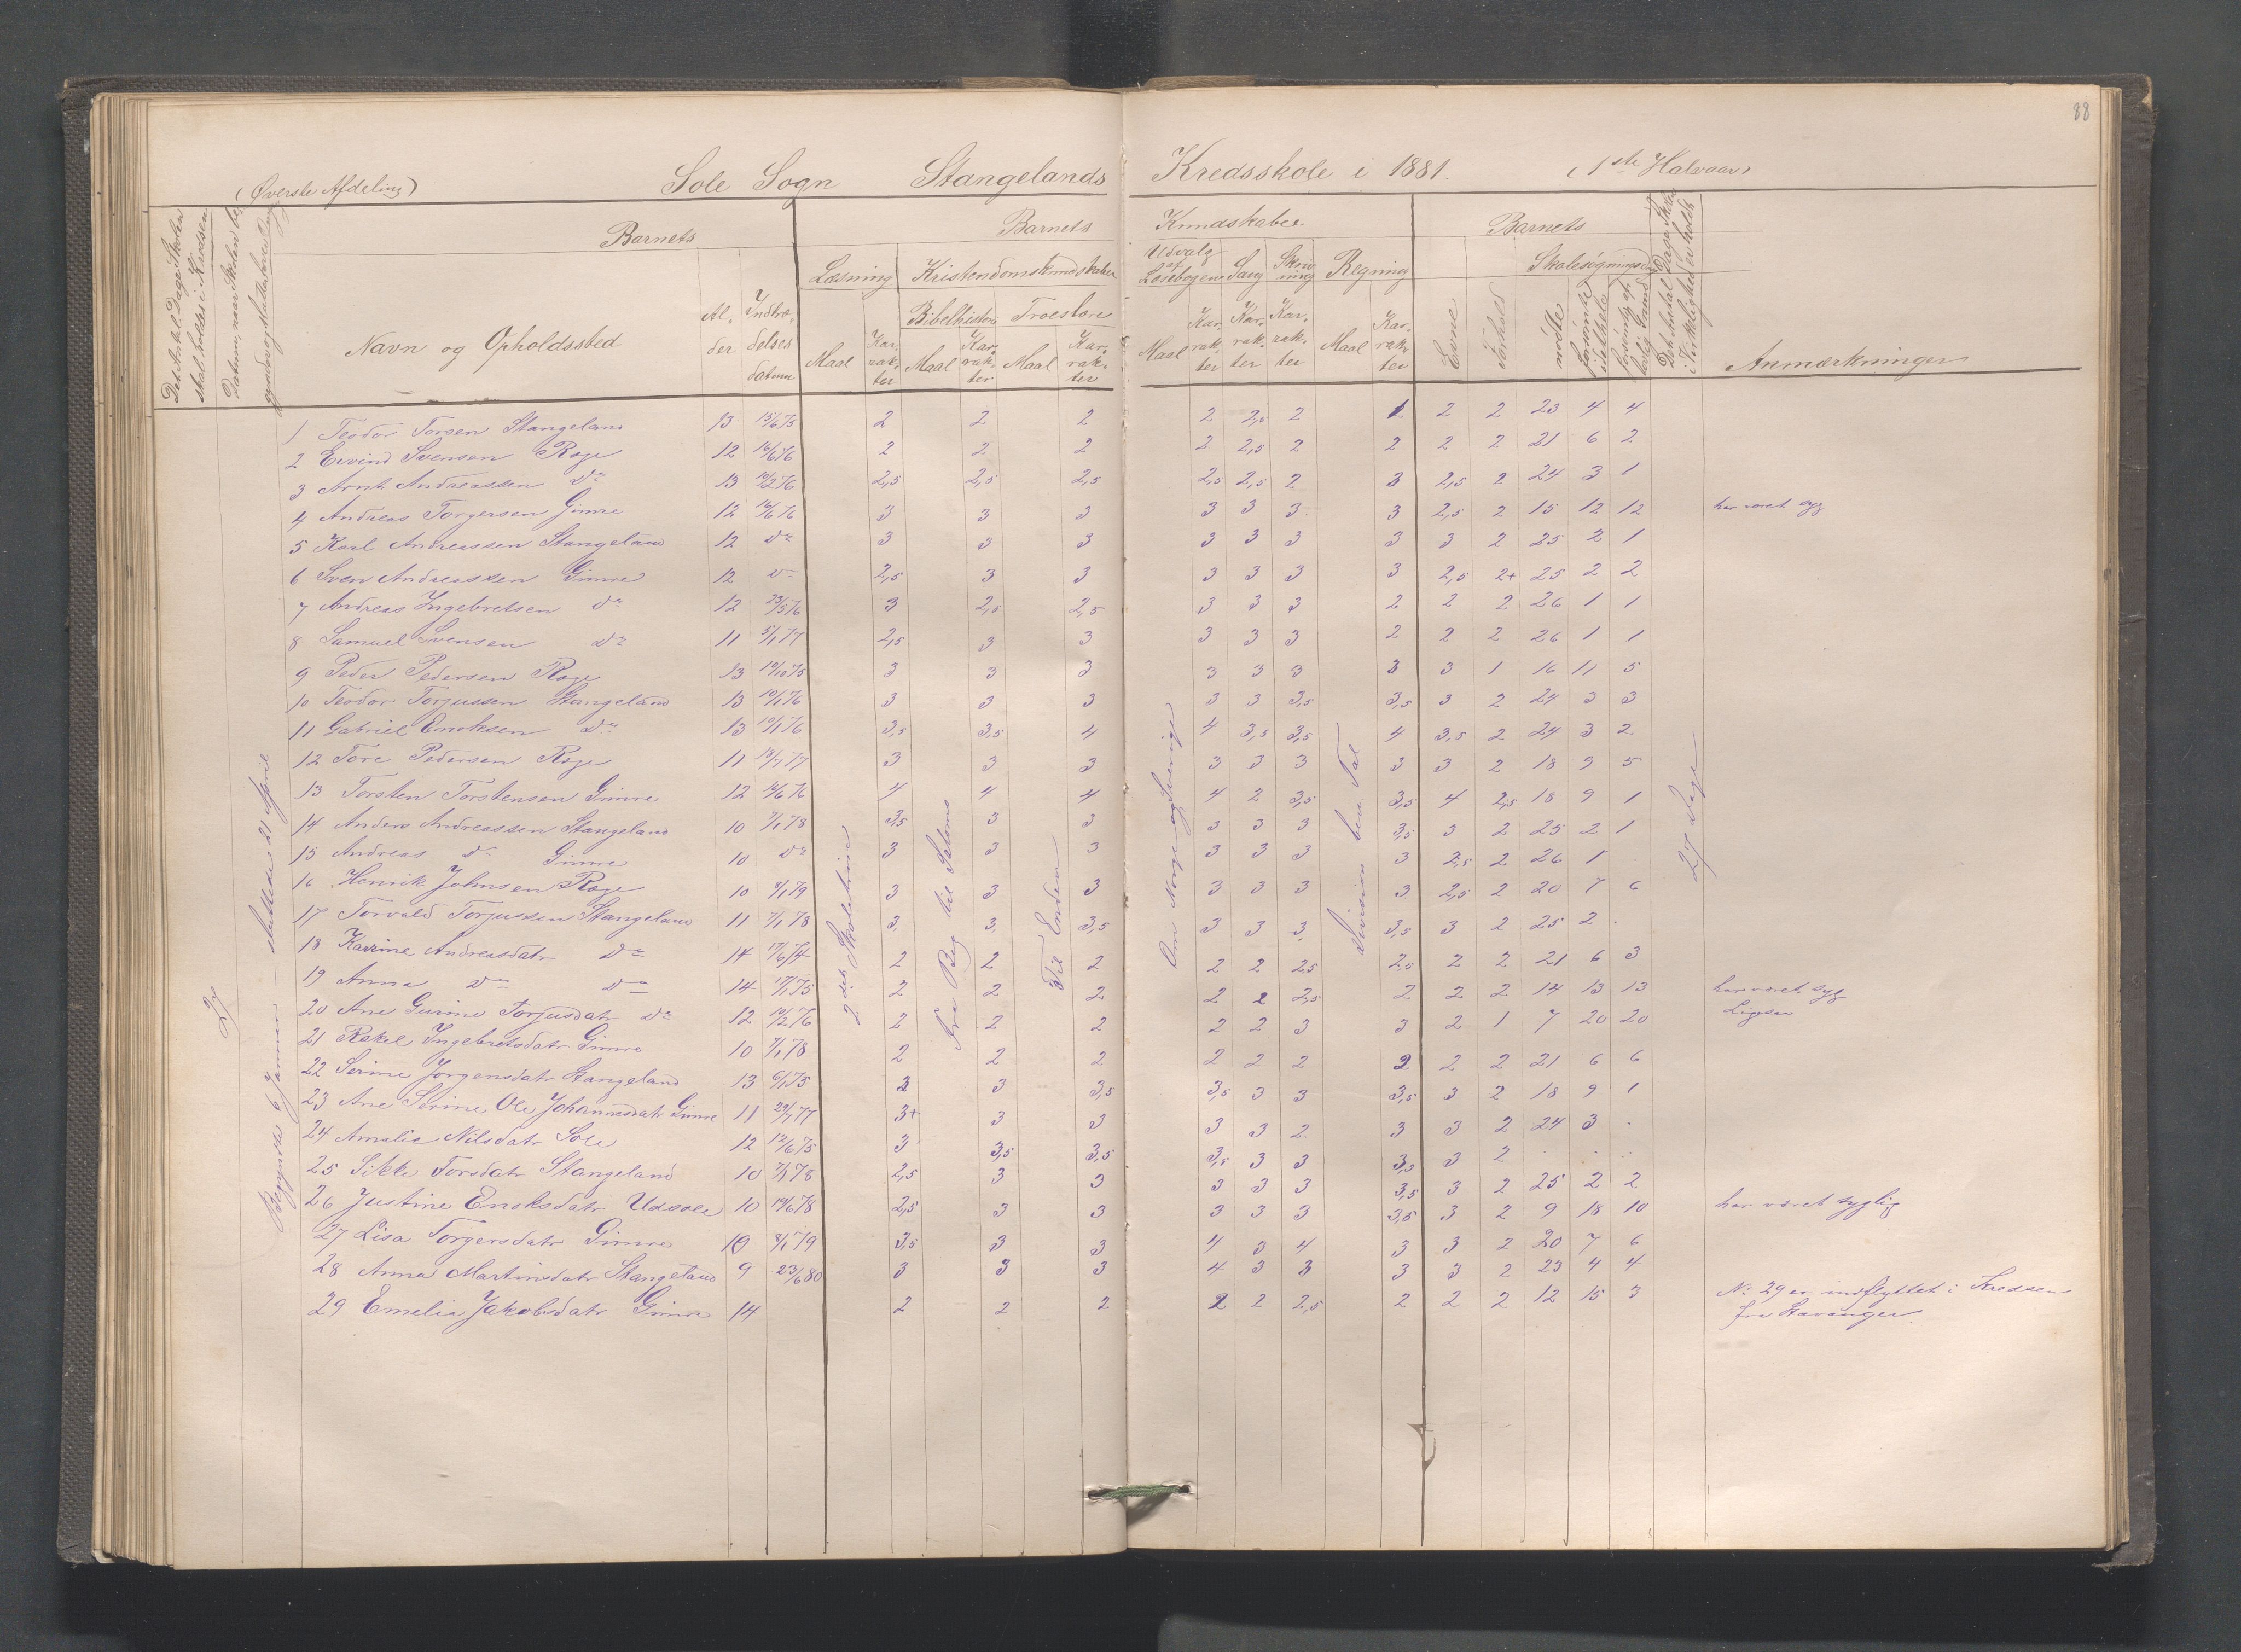 88
(Øverste Afdeling) Sole Sogn Stangelands Kredsskole i 1881. (1ste Halvaar)
Det Antal Dage Skolen skal holdes i Kredsen
Datum, naar Skolen be-
Barnets
Navn og Opholdssted
Al-der
Indtræ-delses datum
Barnets Kundskaber
Læsning
Maal
Karrak-ter
Kristendomskundskaber
Bibelhistorie
Maal
Karrak-ter
Troeslære
Maal
Karrak-ter
Udvalg af Læsebogen
Maal
Karrak-ter
Sang
Karrak-ter
Skriv-ning
Karrak-ter
Regning
Maal
Karrak-ter
Barnets
Evne
Forhold
Skolesøgningsdage
mødte
forsømte i det hele
forsømte af lovlig Grund
Det Antal Dage Skolen i Virkelighed er holdt
Anmærkninger
27
Begyndte 6 Januar - sluttede 21 April
2 det Skoletrin
Fra Beg til Salomo
Til Enden
Om Norge og Sverige
Division ben. Tal
27 Dage
1 Teodor Torsen Stangeland 13 15/6 75 2 2 2 2 2,5 2 1 2 2 23 4 4
2 Eivind Svensen Røge 12 16/6 76 2 2 2 2 2,5 2 2 2 2 21 6 2
3 Arnt Andreassen do 13 10/2 76 2,5 2,5 2,5 2,5 2,5 2 3 2,5 2 24 3 1
4 Andreas Torgersen Gimre 12 16/6 76 3 3 3 3 3 3 3 2,5 2 15 12 12 har været syg
5 Karl Andreassen Stangeland 12 do 3 3 3 3 3 3 3 3 2 25 2 1
6 Sven Andreassen Gimre 12 do 2,5 3 3 3 3 3 3 2,5 2+ 25 2 2
7 Andreas Ingebretsen do 12 23/5 76 3 2,5 2,5 3 3 3 2 2 2 26 1 1
8 Samuel Svensen do 11 5/1 77 2,5 3 3 3 3 3 2 2 2 26 1 1
9 Peder Pedersen Røge 13 10/10 75 3 3 3 3 3 3 3 3 1 16 11 5
10 Teodor Torjussen Stangeland 13 10/1 76 3 3 3 3 3 3,5 3,5 3 2 24 3 3
11 Gabriel Enoksen do 13 10/1 76 3,5 3,5 4 4 3,5 3,5 4 3,5 2 24 3 2
12 Tore Pedersen Røge 11 18/7 77 3 3 3 3 3 3 3 3 2 18 9 5
13 Torsten Torstensen Gimre 12 16/6 76 4 4 4 4 2 3,5 3,5 4 2,5 18 9 1
14 Anders Andreassen Stangeland 10 7/1 78 3,5 3 3 3 3 3 3,5 3 2 25 2 1
15 Andreas do Gimre 10 do 3 3 3 3 3 3 3 2,5 2 26 1 .
16 Henrik Johnsen Røge 10 8/1 79 3 3 3 3 3 3 3 2,5 2 20 7 6
17 Torvald Torjussen Stangeland 11 7/1 78 3 3 3,5 3 3 3 3,5 3 2 25 2 .
18 Karrine Andreasdatr do 14 17/6 74 2 2 2 2 2 2,5 2,5 2 2 21 6 3
19 Anna do do 14 17/1 75 2 2 2 2 2 2,5 2 2 2 14 13 13 har været syg
20 Ane Gurine Torjusdatr do 12 10/2 76 2 2 2 2 2 3 3 2 1 7 20 20 Ligesaa
21 Rakel Ingebretsdatr Gimre 10 7/1 78 2 2 2 2 2 2 2 2 2 21 6 6
22 Serine Jørgensdatr Stangeland 13 6/1 75 3 3 3,5 3,5 3 3 3,5 3 2 18 9 1
23 Ane Serine Ole Johannesdatr Gimre 11 29/1 77 3+ 3 3 3 3 2 3 3 2 24 3 .
24 Amalie Nilsdatr Sole 12 12/6 75 3 3,5 3,5 3,5 3 3 3,5 3 2 . . .
25 Sikke Torsdatr Stangeland 10 7/1 78 2,5 3 3 3 3 3 3,5 3 2 25 2 2
26 Justine Enoksdatr Udsole 10 19/6 78 2,5 3 3 3 3 3 3,5 3 2 9 18 10 har været sygelig
27 Lisa Torgersdatr Gimre 10 8/1 79 3,5 3 3 4 3 4 3 3 2 20 7 6
28 Anna Martinsdatr Stangeland 9 23/6 80 3 3 3 4 3 3 3 3 2 23 4 4
29 Emelia Jakobsdatr Gimre 14 2 2 2 2 2 2,5 2 2 2 12 15 3 No 29 er indflyttet i Kredsen
fra Stavanger